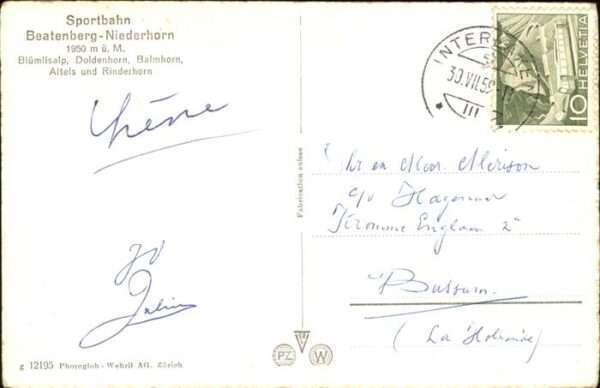 Sportbahn
Beatenberg-Niederhorn
1950 m ü. M.
Blümlisalp, Doldenhorn, Balmhorn,
Altels und Rinderhorn
INTERLAKEN
30.VII.59
III
10 HELVETIA
Fabrication suisse
en Mevr.
c/o Hageman
Kromme Englaan 2
Bussum.
(La Hollande)
g 12195 Photoglob-Wehrli AG, Zürich
PZ W